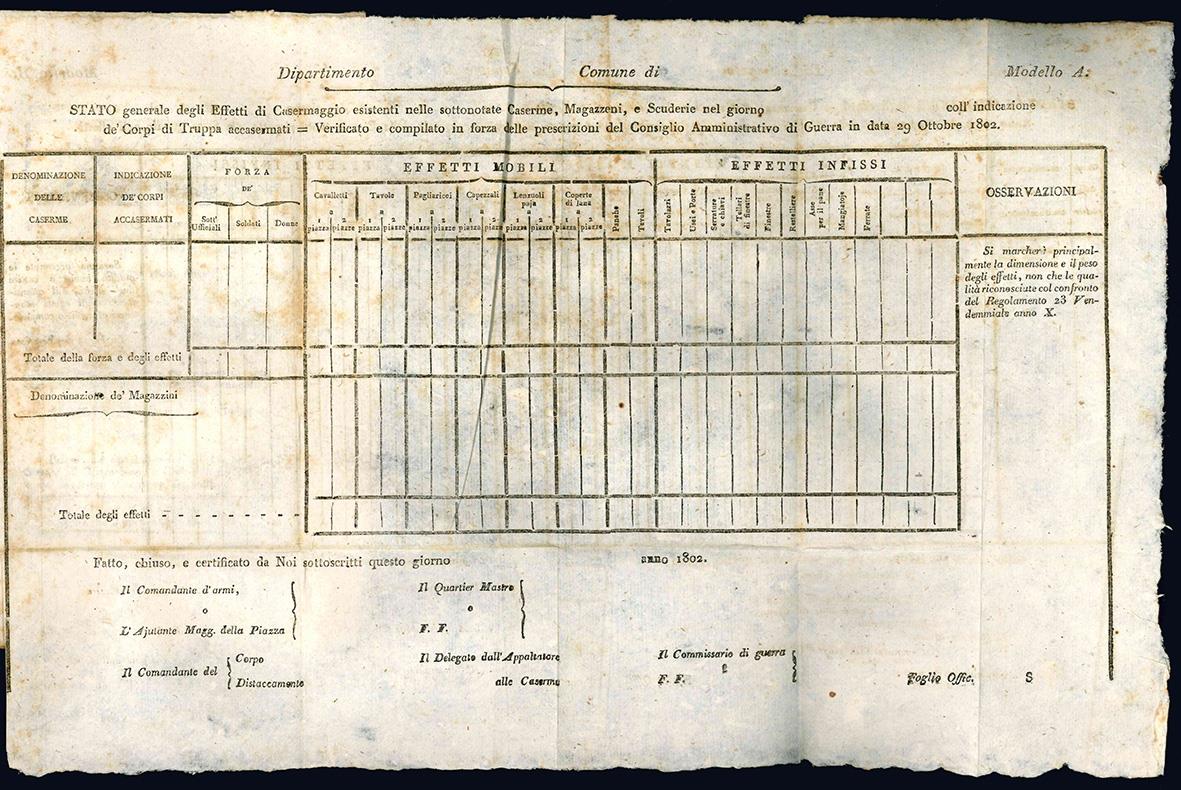 Dipartimento Comune di Modello A.
STATO generale degli Effetti di Casermaggio esistenti nelle sottonotate Caserme, Magazzeni, e Scuderie nel giorno coll' indicazione
de' Corpi di Truppa accasermati = Verificato e compilato in forza delle prescrizioni del Consiglio Amministrativo di Guerra in data 29 Ottobre 1802.
DENOMINAZIONE
DELLE
CASERME
INDICAZIONE
DE' CORPI
ACCASERMATI
FORZA
DE'
Sott'
Ufficiali
Soldati
Donne
EFFETTI MOBILI
Cavalletti
a
1 2
piazze piazze
Tavole
a
1 2
piazze piazze
Pagliaricci
a
1 2
piazze piazze
Capezzali
a
1 2
piazze piazze
Lenzuoli
paja
a
1 2
piazze piazze
Coperte
di lana
a
1 2
piazze piazze
Panche
Tavoli
EFFETTI INFISSI
Tavolazzi
Usci e Porte
Serrature
e chiavi
Tellari
di finestre
Finestre
Rastelliere
Asse
per il pane
Mangiatoje
Ferrate
OSSERVAZIONI
Si marcherà principal-
mente la dimensione e il peso
degli effetti, non che le qua-
lità riconosciute col confronto
del Regolamento 23 Ven-
demmiale anno X.
Totale della forza e degli effetti
Denominazione de' Magazzini
Totale degli effetti - - - - - - - -
Fatto, chiuso, e certificato da Noi sottoscritti questo giorno anno 1802.
Il Comandante d'armi,
o
L'Ajutante Magg. della Piazza
Il Quartier Mastro
o
F. F.
Il Comandante del
Corpo
Distaccamento
Il Delegato dall'Appaltatore
alle Caserme
Il Commissario di guerra
o
F. F.
Foglio Offic. S